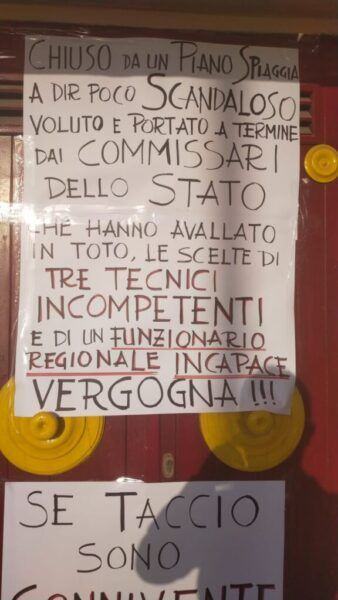 CHIUSO DA UN PIANO SPIAGGIA
A DIR POCO SCANDALOSO
VOLUTO E PORTATO A TERMINE
DAI COMMISSARI
DELLO STATO
CHE HANNO AVALLATO
IN TOTO, LE SCELTE DI
TRE TECNICI
INCOMPETENTI
E DI UN FUNZIONARIO
REGIONALE INCAPACE
VERGOGNA !!!
SE TACCIO
SONO
CONNIVENTE